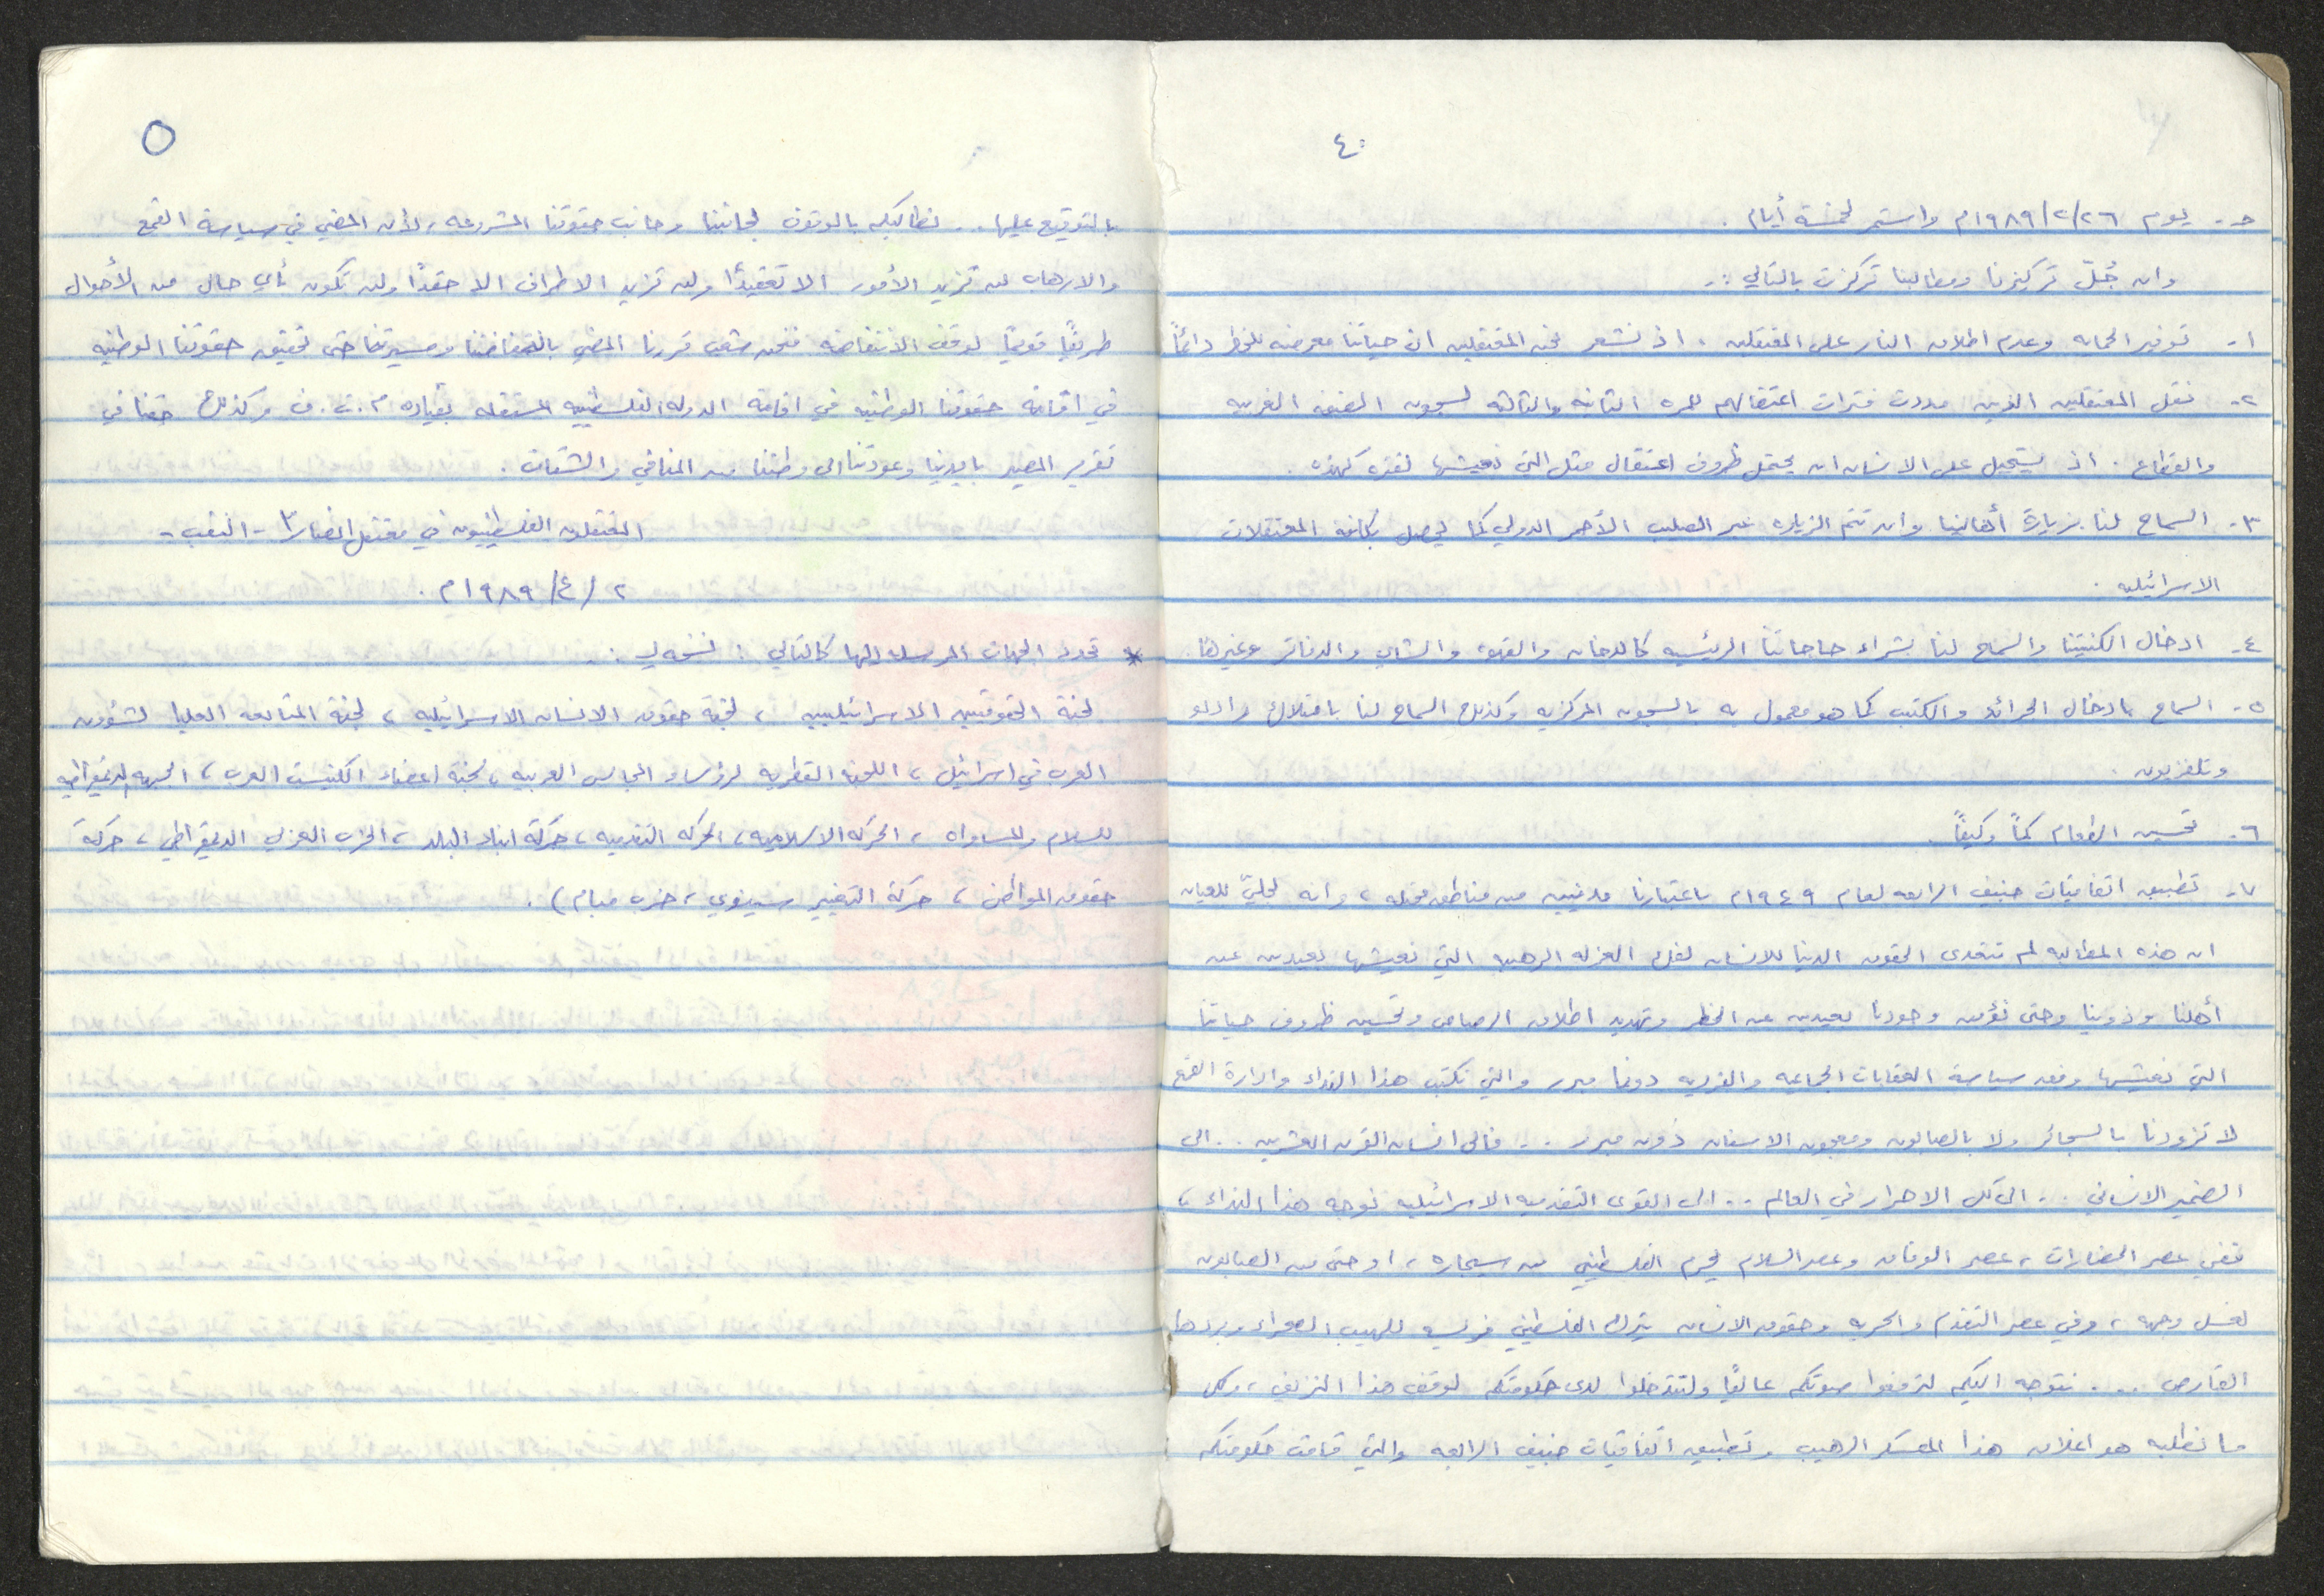 ٤
ح - يوم ١٩٨٩/٢/٢٦م واستمر لخمسة أيام .
وان جُلّ تركيزنا ومطالبنا تركزت بالتالي :-
١- توفير الحمايه وعدم اطلاق النار على المعتقلين . اذ نشعر نحن المعتقلين ان حياتنا معرضه للخطر دائماً
٢- نقل المعتقلين الذين مددت فترات اعتقالهم للمره الثانيه والثالثه لسجون الضفه الغربيه
والقطاع . اذ يستحيل على الانسان ان يحتمل ظروف اعتقال مثل التي نعيشها لفتره كهذه .
٣- السماح لنا بزيارة أهالينا وان تتم الزياره عبر الصليب الأحمر الدولي كما يحصل بكافة المعتقلات
الاسرائيليه .
٤- ادخال الكنتينا والسماح لنا بشراء حاجاتنا الرئيسيه كالدخان والقهوه والشاي والدفاتر وغيرها .
٥- السماح بادخال الجرائد والكتب كما هو معمول به بالسجون المركزيه وكذلك السماح لنا بامتلاك راديو
وتلفزيون .
٦- تحسين الطعام كماً وكيفاً .
٧- تطبيق اتفاقيات جنيف الرابعه لعام ١٩٤٩م باعتبارنا مدنيين من مناطق محتله ، وانه لجليّ للعيان
ان هذه المطالبه لم تتعدى الحقوق الدنيا للانسان لفك العزله الرهيبه التي نعيشها بعيدين عن
أهلنا وذوينا وحتى نؤمن وجودنا بعيدين عن الخطر وتهديد اطلاق الرصاص وتحسين ظروف حياتنا
التي نعيشها وفق سياسة العقابات الجماعيه والفرديه دونما مبرر والتي نكتب هذا النداء وادارة القمع
لا تزودنا بالسجائر ولا بالصابون ومعجون الاسنان دون مبرر .. فالى انسان القرن العشرين .. الى
الضمير الانساني .. الى كل الاحرار في العالم .. الى القوى التقدميه الاسرائيليه نوجه هذا النداء ،
ففي عصر الحضارات ، عصر الوفاق وعصر السلام يحرم الفلسطيني من سيجاره ، او حتى من الصابون
لغسل وجهه ، وفي عصر التقدم والحريه وحقوق الانسان يترك الفلسطيني فريسه للهيب الصحراء وبردها
القارص .... نتوجه اليكم لترفعوا صوتكم عالياً ولتتدخلوا لدى حكومتكم لوقف هذا النزيف ، وكل
ما نطلبه هو اغلاق هذا المعسكر الرهيب وتطبيق اتفاقيات جنيف الرابعه والتي قامت حكومتكم
٥
بالتوقيع عليها .. نطالبكم بالوقوف لجانبنا وجانب حقوقنا المشروعه ، لأن المضي في سياسة القمع
والارهاب لن تزيد الأمور الا تعقيداً ولن تزيد الاطراف الا حقداً ولن تكون بأي حال من الأحوال
طريقاً قويماً لوقف الانتفاضه فنحن شعب قررنا المضي بانتفاضتنا ومسيرتنا حتى تحقيق حقوقنا الوطنيه
في اقامة حقوقنا الوطنيه في اقامة الدوله الفلسطينيه المستقله بقياده م.ت.ف وكذلك حقنا في
تقرير المصير بايدينا وعودتنا الى وطننا من المنافي والشتات .
المعتقلون الفلسطينيون في معتقل انصار ٣ - النقب -
٢ / ٤ / ١٩٨٩م .
* تحدد الجهات المرسله اليها كالتالي : نسخه لـ :-
لجنة الحقوقيين الاسرائيليين ، لجنة حقوق الانسان الاسرائيليه ، لجنة المتابعه العليا لشؤون
العرب في اسرائيل ، اللجنه القطريه لرؤساء المجالس العربيه ، لجنة اعضاء الكنيست العرب ، الجبهه الديمقراطيه
للسلام والمساواه ، الحركه الاسلاميه ، الحركه التقدميه ، حركة ابناء البلد ، الحزب العربي الديمقراطي ، حركة
حقوق المواطن ، حركة التغيير سينوي ، حزب مبام ) .